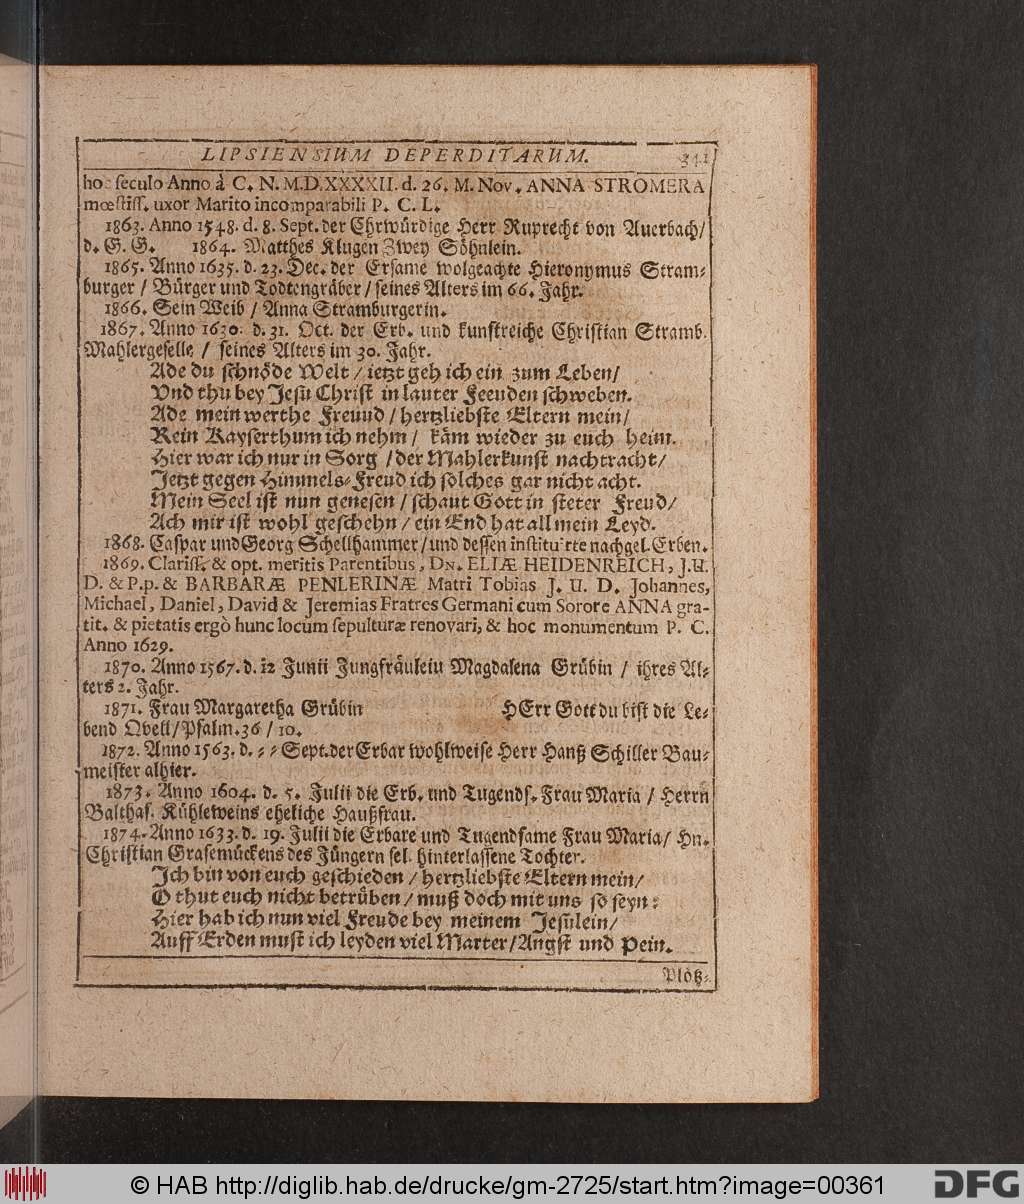 LIPSIENSIUM DEPERDITARUM. 341
hoc seculo Anno à C. N. M.D.XXXXII. d. 26. M. Nov. ANNA STROMERA
mœstiſſ. uxor Marito incomparabili P. C. L.
1863. Anno 1548. d. 8. Sept. der Ehrwürdige Herr Ruprecht von Auerbach/
d. G. G. 1864. Matthes Klugen Zwey Söhnlein.
1865. Anno 1635. d. 23. Dec. der Erſame wolgeachte Hieronymus Stram-
burger / Bürger und Todtengräber / ſeines Alters im 66. Jahr.
1866. Sein Weib / Anna Stramburgerin.
1867. Anno 1630. d. 31. Oct. der Erb. und kunſtreiche Chriſtian Stramb.
Mahlergeſelle / ſeines Alters im 30. Jahr.
Ade du ſchnöde Welt / ietzt geh ich ein zum Leben/
Vnd thu bey Jeſu Chriſt in lauter Feeuden ſchweben.
Ade mein werthe Freuud / hertzliebſte Eltern mein/
Kein Kayſerthum ich nehm / käm wieder zu euch heim.
Hier war ich nur in Sorg / der Mahlerkunſt nachtracht/
Jetzt gegen Himmels-Freud ich ſolches gar nicht acht.
Mein Seel iſt nun geneſen / ſchaut Gott in ſteter Freud/
Ach mir iſt wohl geſchehn / ein End hat all mein Leyd.
1868. Caſpar und Georg Schellhammer/ und deſſen inſtituirte nachgel. Erben.
1869. Clariſſ. & opt. meritis Parentibus, DN. ELIÆ HEIDENREICH, J.U.
D. & P.p. & BARBARÆ PENLERINÆ Matri Tobias J. U. D. Johannes,
Michael, Daniel, David & Jeremias Fratres Germani cum Sorore ANNA gra-
tit. & pietatis ergò hunc locum ſepulturæ renovari, & hoc monumentum P. C.
Anno 1629.
1870. Anno 1567. d. 12 Junii Jungfräuleiu Magdalena Grübin / ihres Al-
ters 2. Jahr.
1871. Frau Margaretha Grübin HErr Gott du biſt die Le-
bend Qvell/Pſalm. 36 / 10.
1872. Anno 1563. d. - - Sept. der Erbar wohlweiſe Herr Hanß Schiller Bau-
meiſter alhier.
1873. Anno 1604. d. 5. Julii die Erb. und Tugendſ. Frau Maria / Herrn
Balthaſ. Kühleweins eheliche Haußfrau.
1874. Anno 1633. d. 19. Julii die Erbare und Tugendſame Frau Maria/ Hn.
Chriſtian Graſemückens des Jüngern ſel. hinterlaſſene Tochter.
Ich bin von euch geſchieden / hertzliebſte Eltern mein/
O thut euch nicht betrüben / muß doch mit uns ſo ſeyn:
Hier hab ich nun viel Freude bey meinem Jeſulein/
Auff Erden muſt ich leyden viel Marter/Angſt und Pein.
Plötz-
© HAB http://diglib.hab.de/drucke/gm-2725/start.htm?image=00361
DFG